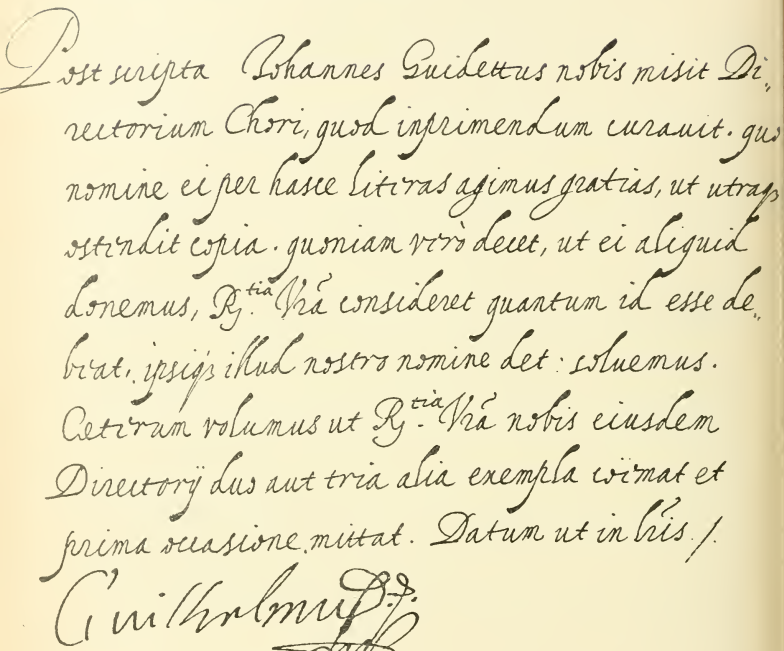 Post scripta Johannes Guidettus nobis misit Di„
rectorium Chori, quod inprimendum curauit. quo
nomine ei per hasce literas agimus gratias, ut utraq3
ostendit copia. quoniam verò decet, ut ei aliquid
donemus, R.tia Vrã consideret quantum id esse de„
beat. ipsiq3 illud nostro nomine det: soluemus.
Ceterum volumus ut R.tia Vrã nobis eiusdem
Directorij duo aut tria alia exempla coëmat et
prima occasione mittat. Datum ut in lrĩs /.
Guilhelmus